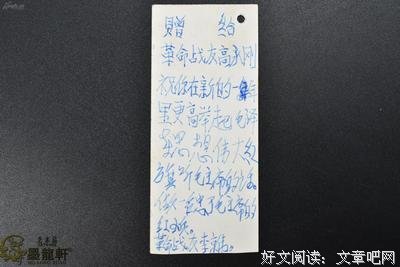 赠 给
革命战友高
祝你在新的一年
里更高举起毛泽
东思想伟大红
旗 听毛主席的话。
做 忠于毛主席的
红小兵。
革命战友李
墨龍軒
好文阅读:文章吧网